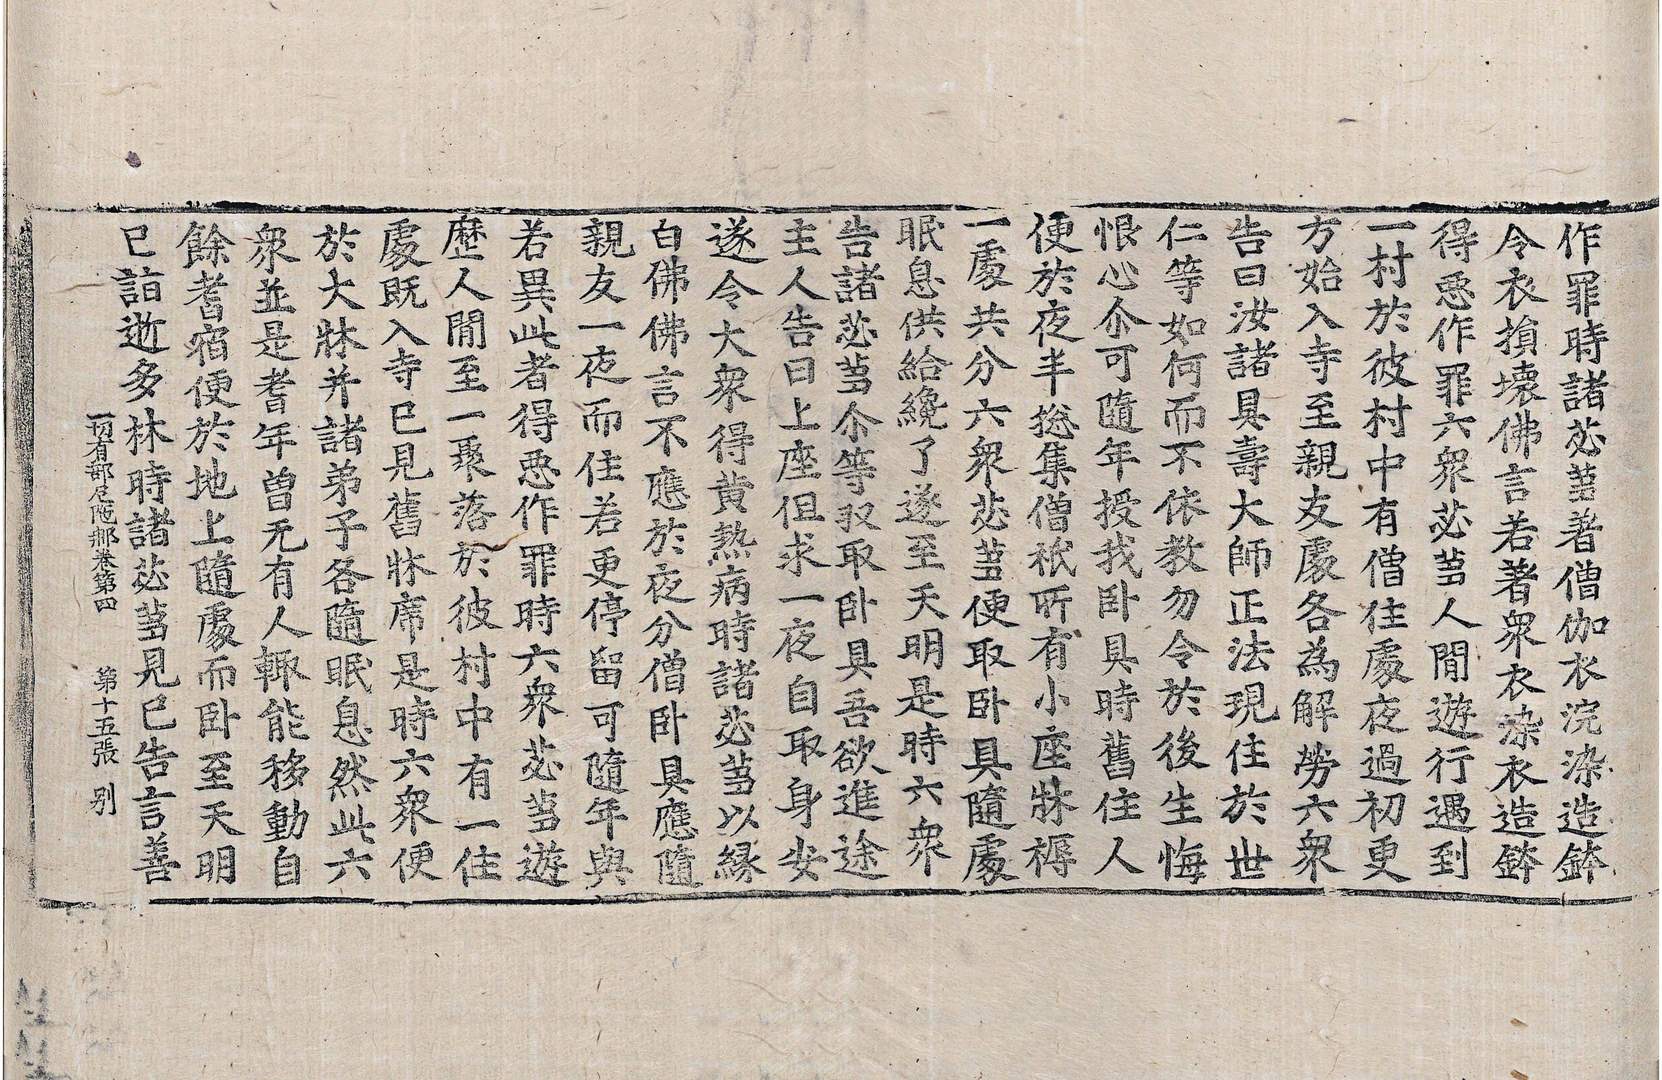 作罪時諸苾芻著僧伽衣浣染造鉢
令衣損壞佛言若著衆衣染衣造鉢
得惡作罪六衆苾芻人閒遊行遇到
一村於彼村中有僧住處夜過初更
方始入寺至親友處各為解勞六衆
告曰汝諸具壽大師正法現住於世
仁等如何而不依教勿令於後生悔
恨心尒可隨年授我卧具時舊住人
便於夜半揔集僧祇所有小座牀褥
一處共分六衆苾芻便取卧具隨處
眠息供給纔了遂至天明是時六衆
告諸苾芻尒等収取卧具吾欲進途
主人告曰上座但求一夜自取身安
遂令大衆得黄熱病時諸苾芻以緣
白佛佛言不應於夜分僧卧具應隨
親友一夜而住若更停留可隨年與
若異此者得惡作罪時六衆苾芻遊
歷人閒至一聚落於彼村中有一住
處既入寺已見舊牀席是時六衆便
於大牀并諸弟子各隨眠息然此六
衆並是耆年曾无有人輙能移動自
餘耆宿便於地上隨處而卧至天明
已詣逝多林時諸苾芻見已告言善
一切有部尼陁那卷第四 第十五張 别